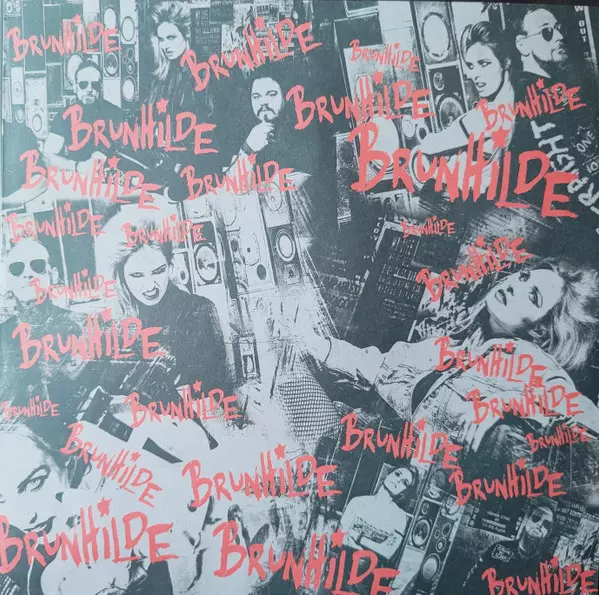 BRUNHILDE
BRUNHILDE
BRUNHILDE
W OUT
BRUNHILDE
BRUNHILDE
BRUNHILDE
ONE
BRUNHILDE
BRUNHILDE
BRUNHILDE
BRUNHILDE
BRUNHILDE
BRUNHILDE
BRUNHILDE
BRUNHILDE
BRUNHILDE
BRUNHILDE
BRUNHILDE
BRUNHILDE
BRUNHILDE
BRUNHILDE
BRUNHILDE
BRUNHILDE
BRUNHILDE
BRUNHILDE
BRUNHILDE
BRUNHILDE
BRUNHILDE